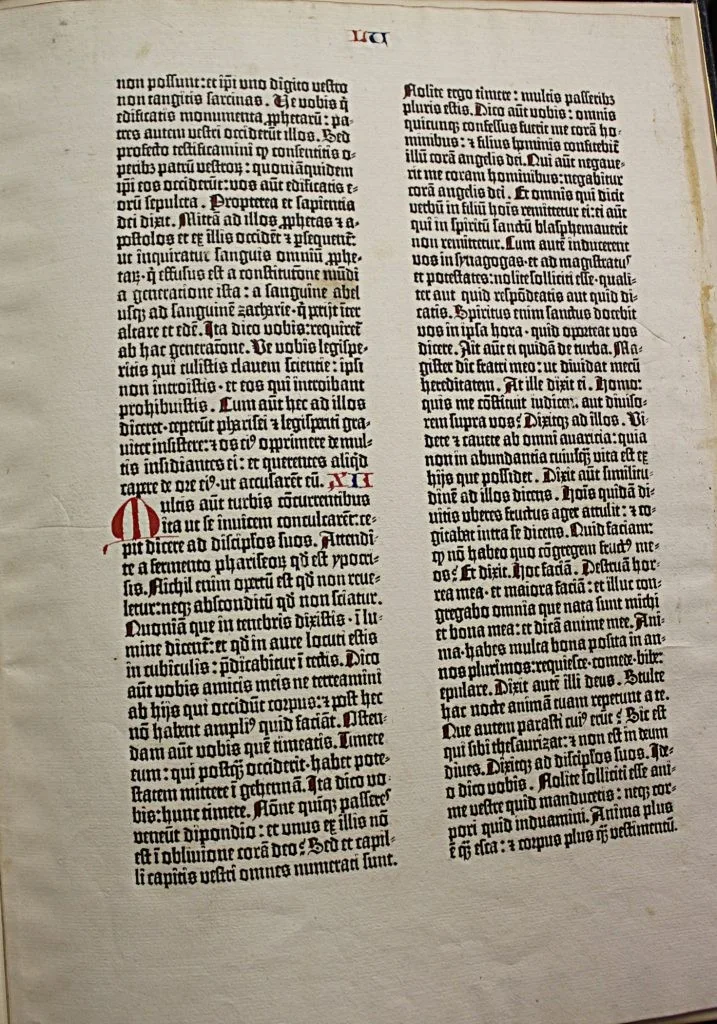 LU
non possunt: et ip̄i uno digito vestro
non tangitis sarcinas. Ve vobis q̄
edificatis monumenta ꝓphetarū: pa-
tres autem vestri occiderūt illos. Sed
profecto testificamini ꝙ consentitis o-
peribꝫ patrū vestroꝝ: quoniā quidem
ip̄i eos occiderūt: vos aūt edificatis e-
orū sepulcra. Propterea et sapientia
dei dixit. Mittā ad illos ꝓphetas ⁊ a-
postolos et ex illis occidēt ⁊ ꝑsequent᷑:
ut inquiratur sanguis omniū ꝓphe-
taꝝ· q̄ effusus est a constitutōne mūdi
a generatione ista: a sanguine abel
usqꝫ ad sanguinē zacharie· q̄ perijt īter
altare et edē. Ita dico vobis: requiret᷑
ab hac generatōne. Ve vobis legispe-
ritis qui tulistis clavem scientie: ipsi
non introistis· et eos qui introibant
prohibuistis. Cum aūt hec ad illos
diceret· ceperūt pharisei ⁊ legisperiti gra-
viter insistere: ⁊ os eiꝰ opprimere de mul-
tis insidiantes ei: et querentes aliqd̄
capere de ore eiꝰ· ut accusarēt eū. XII
Multis aūt turbis cōcurrentibus
ita ut se invicem conculcarēt: ce-
pit dicere ad discipłos suos. Attendi-
te a fermento phariseoꝝ qd̄ est ypocri-
sis. Nichil enim opertū est qd̄ non reve-
letur: neqꝫ absconditū qd̄ non sciatur.
Quoniā que in tenebris dixistis· ī lu-
mine dicent᷑: et qd̄ in aure locuti estis
in cubiculis: p̄dicabitur ī tectis. Dico
aūt vobis amicis meis ne terreamini
ab hijs qui occidūt corpus: ⁊ post hec
nō habent ampliꝰ quid faciāt. Osten-
dam aūt vobis quē timeatis. Timete
eum: qui postꝙ̄ occiderit· habet pote-
statem mittere ī gehennā. Ita dico vo-
bis: hunc timete. Nōne quiqꝫ passeres
veneūt dipondio: et unus ex illis nō
est ī oblivione corā deo? Sed et capil-
li capitis vestri omnes numerati sunt.
Nolite ergo timere: multis passeribꝫ
pluris estis. Dico aūt vobis: omnis
quicunqꝫ confessus fuerit me corā ho-
minibus: ⁊ filius hominis confitebit᷑
illū corā angelis dei. Qui aūt negave-
rit me coram hominibus: negabitur
corā angelis dei. Et omnis qui dicit
verbū in filiū hoīs remittetur ei: ei aūt
qui in spiritū sanctū blasphemaverit
non remittetur. Cum autē inducerent
vos in synagogas· et ad magistratꝰ
et potestates: nolite solliciti esse· quali-
ter aut quid respōdeatis aut quid di-
catis. Spiritus enim sanctus docebit
vos in ipsa hora· quid oporteat vos
dicere. Ait aūt ei quidā de turba. Ma-
gister dic fratri meo: ut dividat mecū
hereditatem. At ille dixit ei. Homo:
quis me cōstituit iudicem aut diviso-
rem supra vos? Dixitqꝫ ad illos. Vi-
dete ⁊ cavete ab omni avaritia: quia
non in abundantia cuiusqꝫ vita est ex
hijs que possidet. Dixit aūt similitu-
dinē ad illos dicens. Hoīs quidā di-
vitis uberes fructus ager attulit: ⁊ co-
gitabat intra se dicens. Quid faciam:
ꝙ nō habeo quo cōgregem fructꝰ me-
os? Et dixit. Hoc faciā. Destruā hor-
rea mea· et maiora faciā: et illuc con-
gregabo omnia que nata sunt michi
et bona mea: et dicā anime mee. Ani-
ma· habes multa bona posita in an-
nos plurimos: requiesce· comede· bibe·
epulare. Dixit autē illi deus. Stulte
hac nocte animā tuam repetunt a te.
Que autem parasti cuiꝰ erūt? Sic est
qui sibi thesaurizat: ⁊ non est in deum
dives. Dixitqꝫ ad discipłos suos. Ide-
o dico vobis. Nolite solliciti esse ani-
me vestre quid manducetis: neqꝫ cor-
pori quid induamini. Anima plus
ē qꝫ esca: ⁊ corpus plus qꝫ vestimentū.